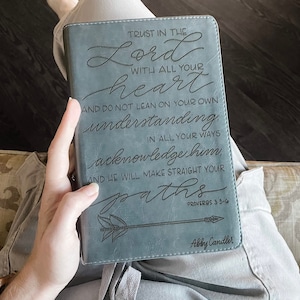 TRUST IN THE
Lord
WITH ALL YOUR
heart
AND DO NOT LEAN ON YOUR OWN
understanding
IN ALL YOUR WAYS
acknowledge him
AND HE WILL MAKE STRAIGHT YOUR
paths
PROVERBS 3:5-6
Abby Candler